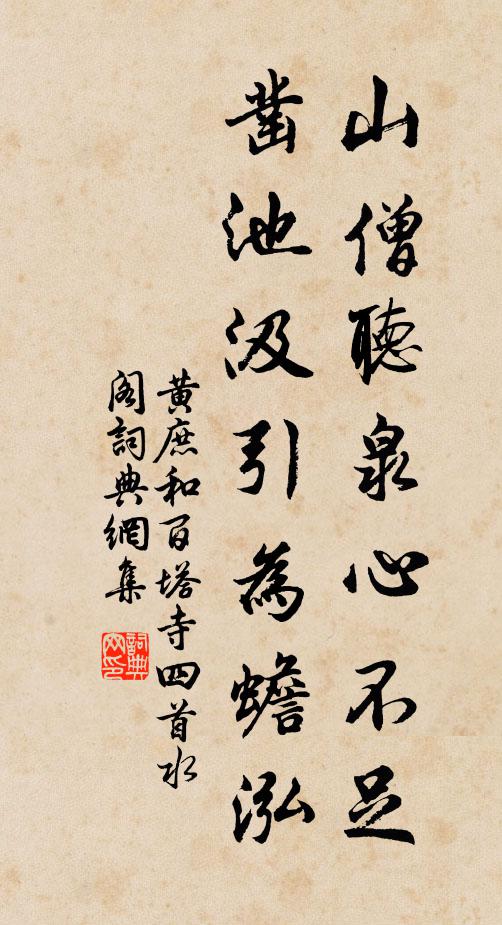 山僧聽泉心不足
鑿池汲引為蟾泓
黃庶和百塔寺四首水
閣詞典網集
詞典網印